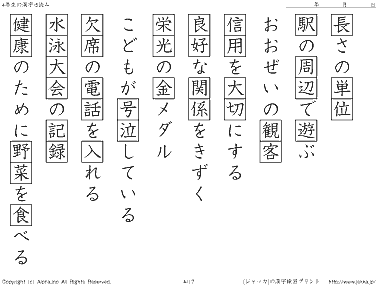 4年生の漢字の読み
年 月 日
長さの単位
駅の周辺で遊ぶ
おおぜいの観客
信用を大切にする
良好な関係をきずく
栄光の金メダル
こどもが号泣している
欠席の電話を入れる
水泳大会の記録
健康のために野菜を食べる
Copyright (c) Alpha.ino All Rights Reserved.
(ジャッカ)の漢字練習プリント http://www.jakka.jp/